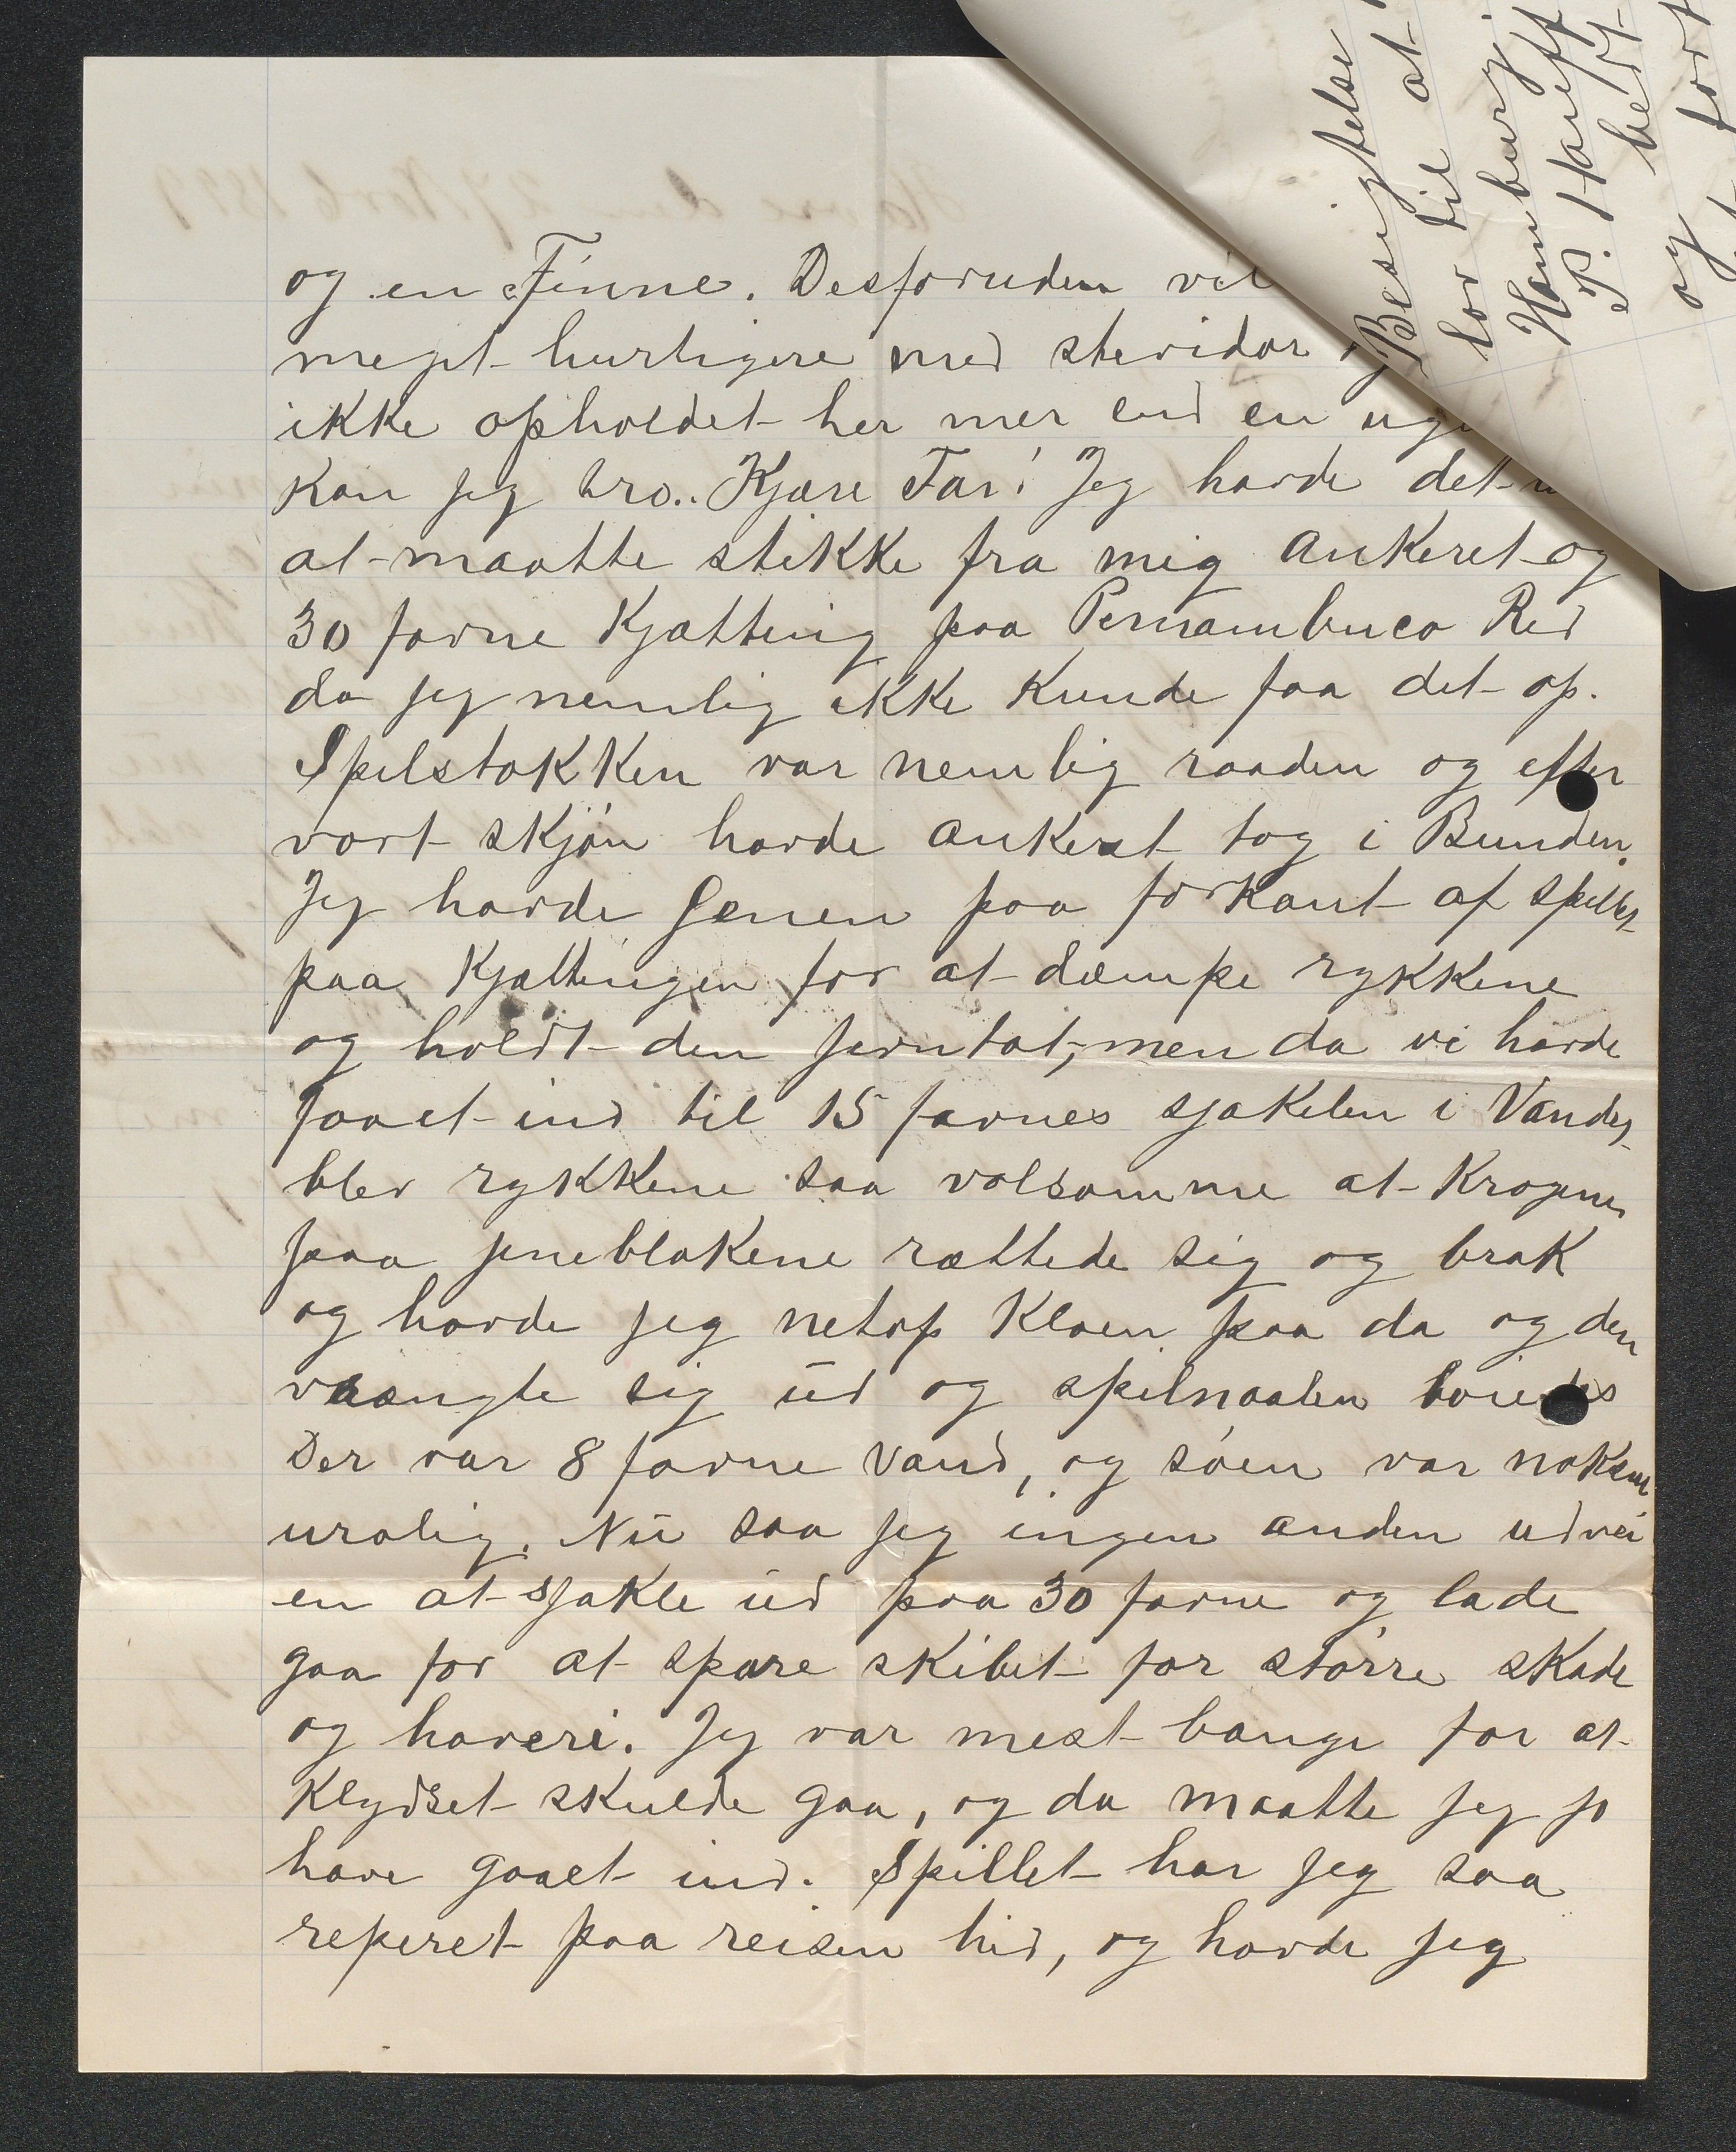 og en Finne. Desforuden vil
meget hurtigere med stevidor
ikke opholdet her mer end en uge
Kan jeg tro.. Kjære Far! Jeg havde det
at maatte stikke fra mig Ankeret og
30 favne Kjætting paa Pernambuco Red
da jeg nemlig ikke Kunde faa det op.
Spilstokken var nemlig raaden og efter
vort skjön havde Ankeret tag i Bunden.
Jeg havde Jenen paa forkant af spillet
paa Kjættingen for at dæmpe rykkene
og holdt den jevntot, men da vi havde
faaet ind til 15 favnes sjakelen i Vandet
blev rykkene saa volsomme at Krogene
paa jineblokene rættede sig og brak
og havde jeg netop Kloen paa da og den
vrængte sig ud og spilnaalen böiedes
Der var 8 favne Vand, og söen var noksaa
urolig. Nu saa jeg ingen anden udvei
en at sjakle ud paa 30 favne og lade
gaa for at spare skibet for större skade
og haveri. Jeg var mest bange for at
Klydset skulde gaa, og da maatte jeg jo
have gaaet ind. Spillet har jeg saa
reperet paa reisen hid, og havde jeg
Besigtelse
lov til at
Hamburg
P. Harieff
og fort